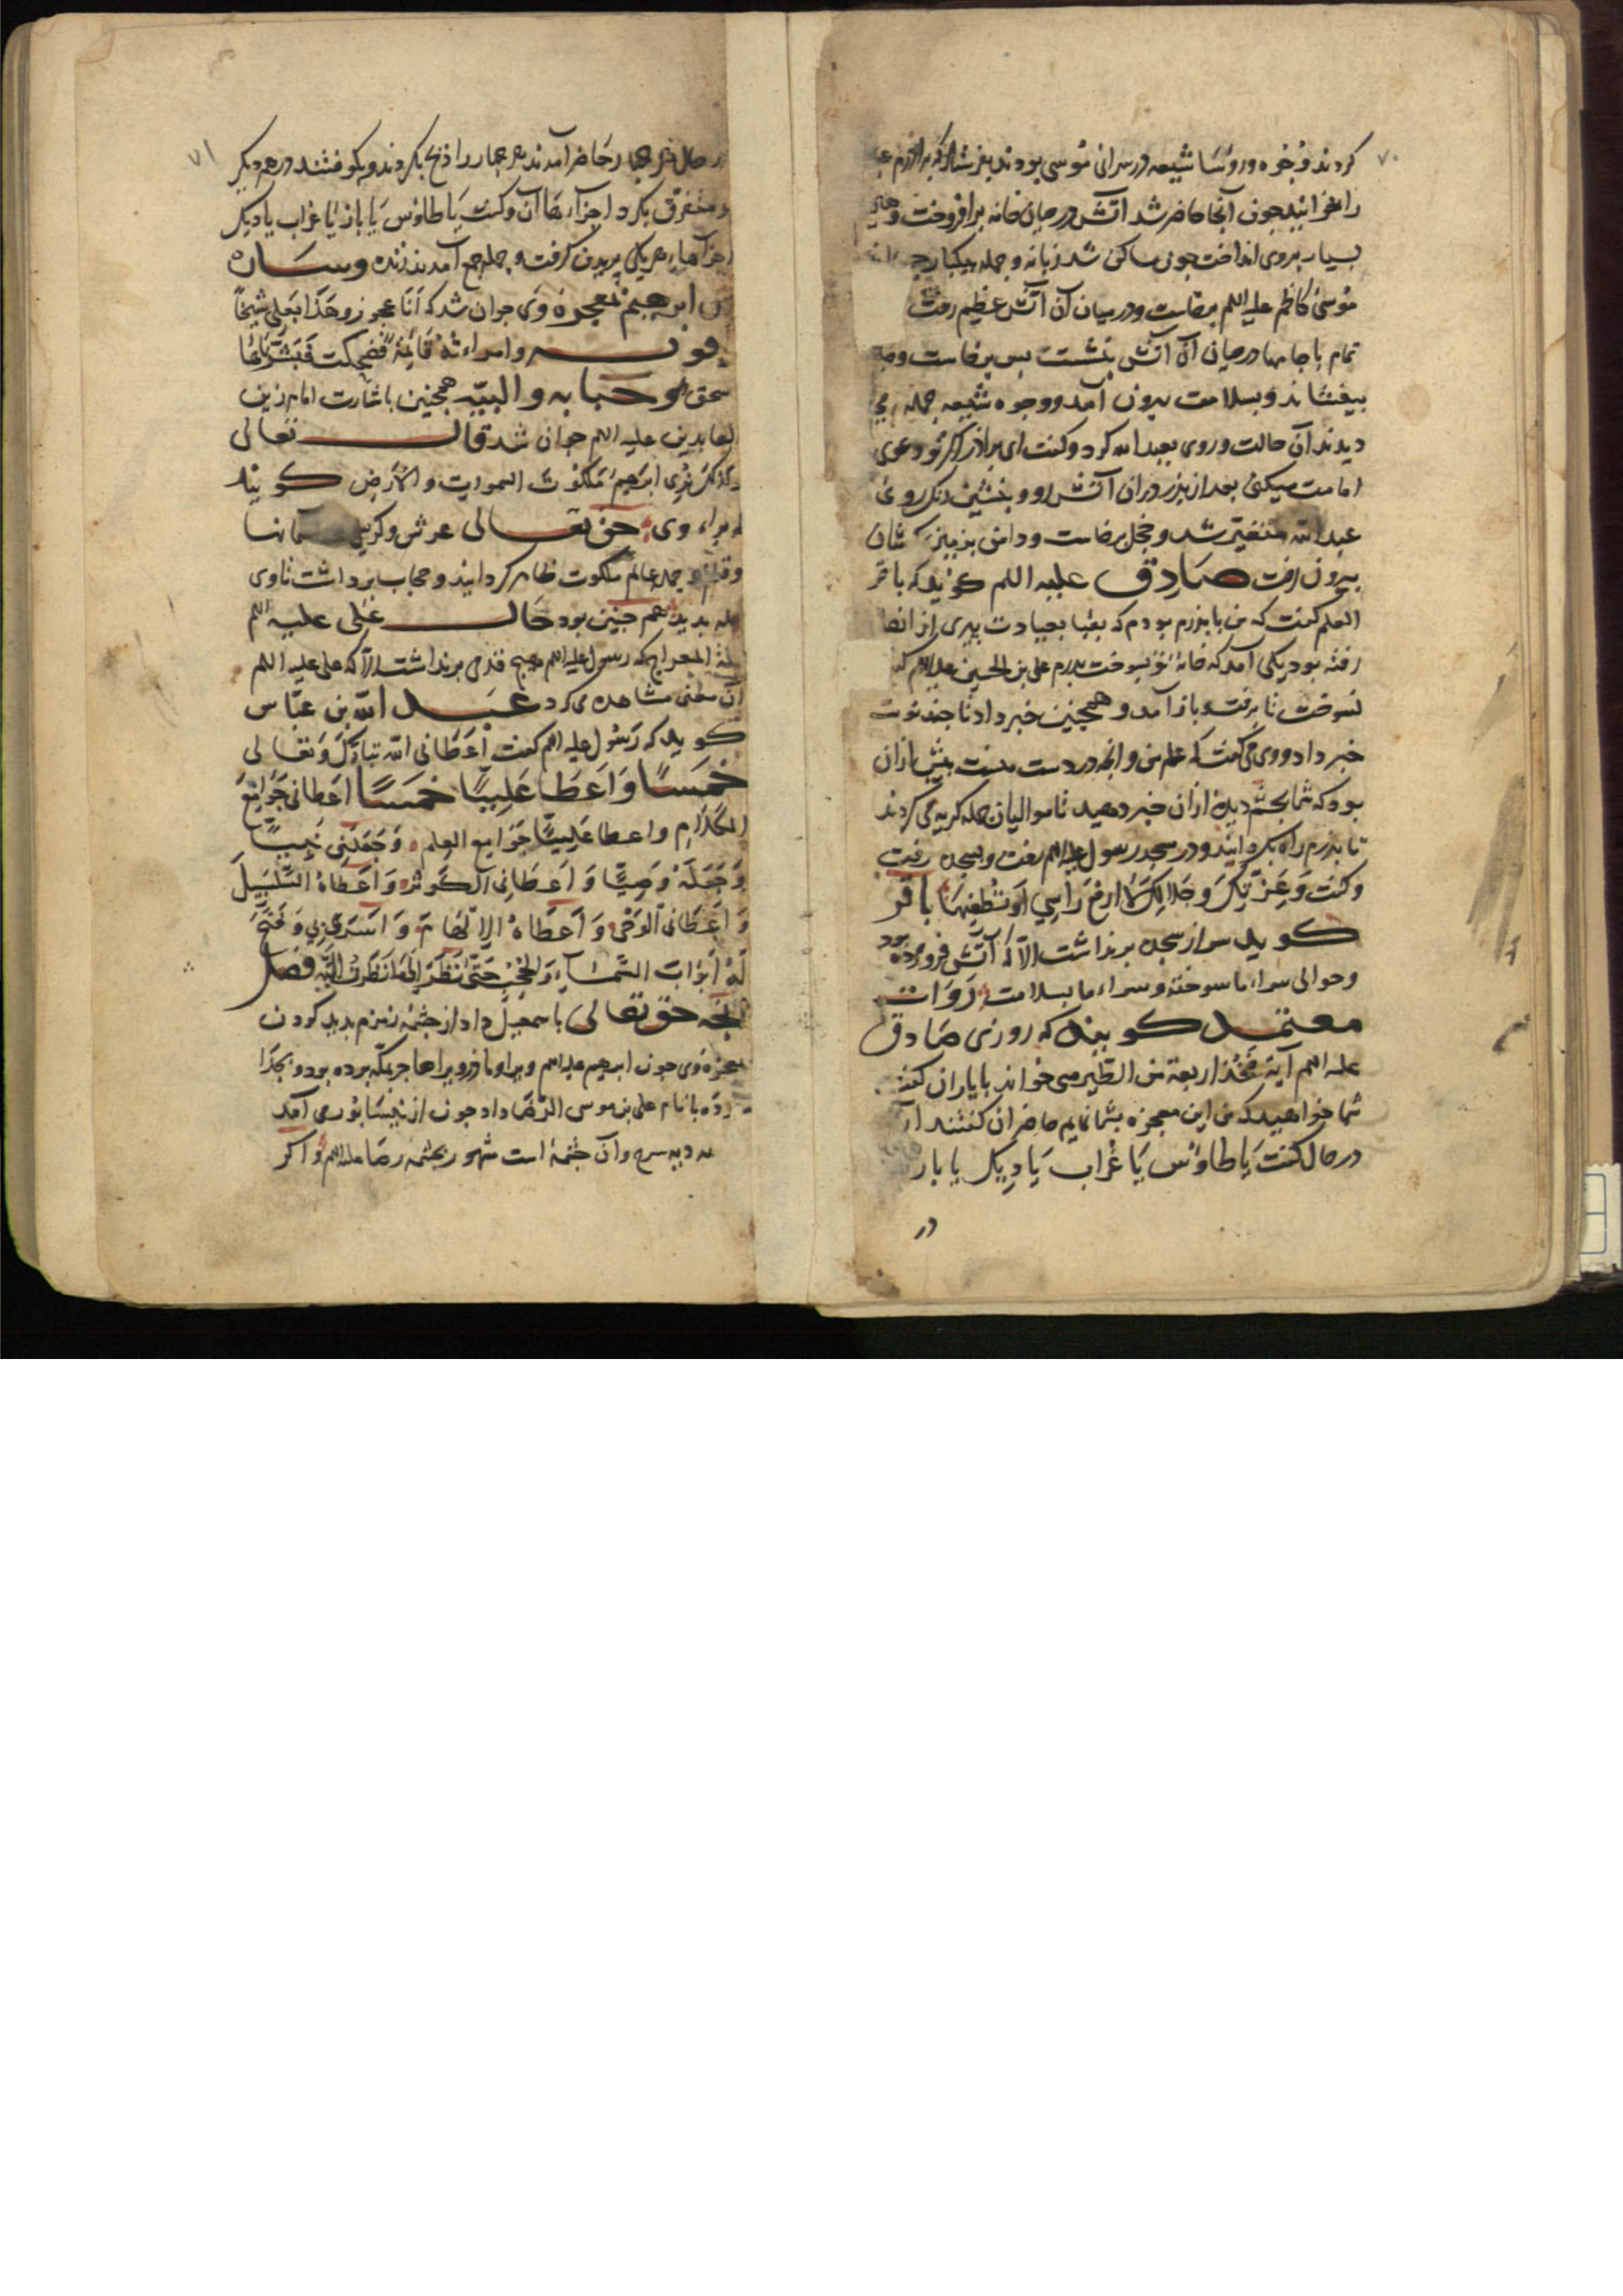 ۷۰
كردند وجوه و روسا شیعه در سرای موسی بودند
را بخوانید جون آنجا حاضر شد آتش در میان خانه برافروخت و
بسیار بروی انداخت جون ساکن شد زبانه و جمله بیکبار
موسی کاظم علیه السلم برخاست و در میان آن آتش عظیم رفت
تمام با جامها در میان آن آتش بنشست بس برخاست و
بیفشاند و بسلامت بیرون آمد و وجوه شیعه جمله می
دیدند آن حالت و روی بعبد الله کرد و کفت ای براذر اکر تو دعوی
امامت میکنی بعد از بذر در آن آتش رو و بنشین رنک روی
عبد الله متغیر شد و خجل برخاست و دامن
بیرون رفت صادق علیه السلم کوید که باقر
العلم کفت که من با بذرم بودم که بقبا بعیادت بیری از انصا
رفته بود یکی آمد که خانه تو بسوخت بدرم علی بن الحسین علیه السلم کفت
نسوخت تا برفت و باز آمد و همجنین خبر داد تا جند نوبت
خبر داد و وی می کفت که علم من و انجه در دست منست بیش از آن
بود که شما بجشم دیده از آن خبر دهید تا موالیان جمله کریه می کردند
تا بذرم راه بکردانید و در مسجد رسول علیه السلم رفت و بسجده رفت
و کفت وعزتک وجلالک لا ارفع راسی او تطفیها باقر
کوید سر از سجده برنداشت الا که آتش فرو مرده بود
و حوالی سراء ما سوخته و سراء ما بسلامت روات
معتمد کویند که روزی صادق
علیه السلم آیة فخذ اربعة من الطیر می خواند با یاران کفت
شما خواهید که من این معجزه بشما نمایم حاضران کفتند آر
در حال کفت یا طاوس یا غراب یا دیک یا باز
در
۷۱
در حال هر جهار حاضر آمدند هر جهار را ذبح بکردند و بکوفتند در همدیکر
و متفرق بکرد اجزاء هاء آن و کفت یا طاوس یا باز یا غراب یا دیک
اجزاهاء هر یکی بریدن کرفت و جمله جمع آمدند زنده وساره
زن ابرهیم بمعجزه وی جوان شد که انا عجوز وهذا بعلی شیخا
وامراءته قایمة فضحکت فبشرناها
باسحق و حبابه والبیه همجنین باشارت امام زین
العابدین علیه السلم جوان شد قال تعالی
وکذلک نری ابرهیم ملکوت السموات والارض کویند
که براء وی حق تعالی عرش و کرسی و آسمانها
و جمله عالم ملکوت ظاهر کردانید و حجاب برداشت تا وی
جمله بدید هم جنین بود حال علی علیه السلم
لیلة المعراج که رسول علیه السلم هیج قدمی برنداشت الا که علی علیه السلم
آن معنی مشاهده می کرد عبد الله بن عباس
کوید که رسول علیه السلم کفت اعطانی الله تبارک وتعالی
خمسا واعطا علیا خمسا اعطانی جوامع
الکلام واعطا علیا جوامع العلم وجعلنی نبیا
وجعله وصیا واعطانی الکوثر واعطاه السلسبیل
واعطانی الوحی واعطاه الالهام واسری بی وفتح
له ابواب السماء والحجب حتی نظر الی ما نظرت الیه فصل
انجه حق تعالی با سمعیل داد از جشمه زمزم بدید کردن
معجزه وی جون ابرهیم علیه السلم ویرا و ماذر ویرا هاجر بمکه برده بود و بجذا
با نام علی بن موسی الرضا داد جون از نیسابور می آمد
به دیه سرح و آن جشمه است مشهور بجشمه رضا علیه السلم و اکر